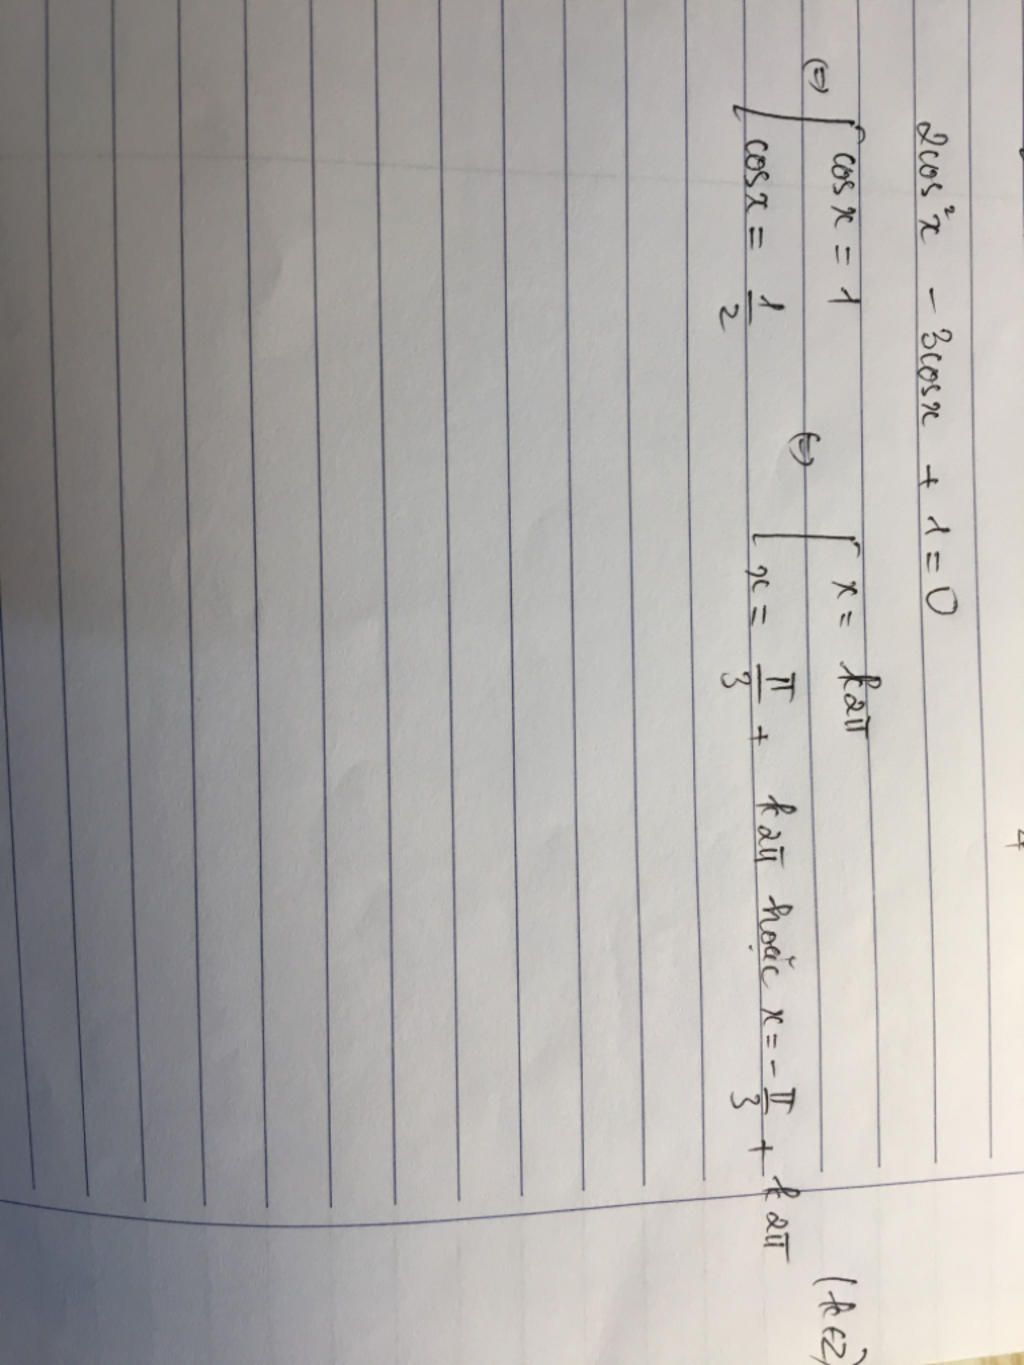 2cos²x - 3cosx + 1 = 0
(=) [ cosx = 1 (=) [ x = k2π
cosx = 1/2 x = π/3 + k2π hoặc x = -π/3 + k2π (k∈Z)